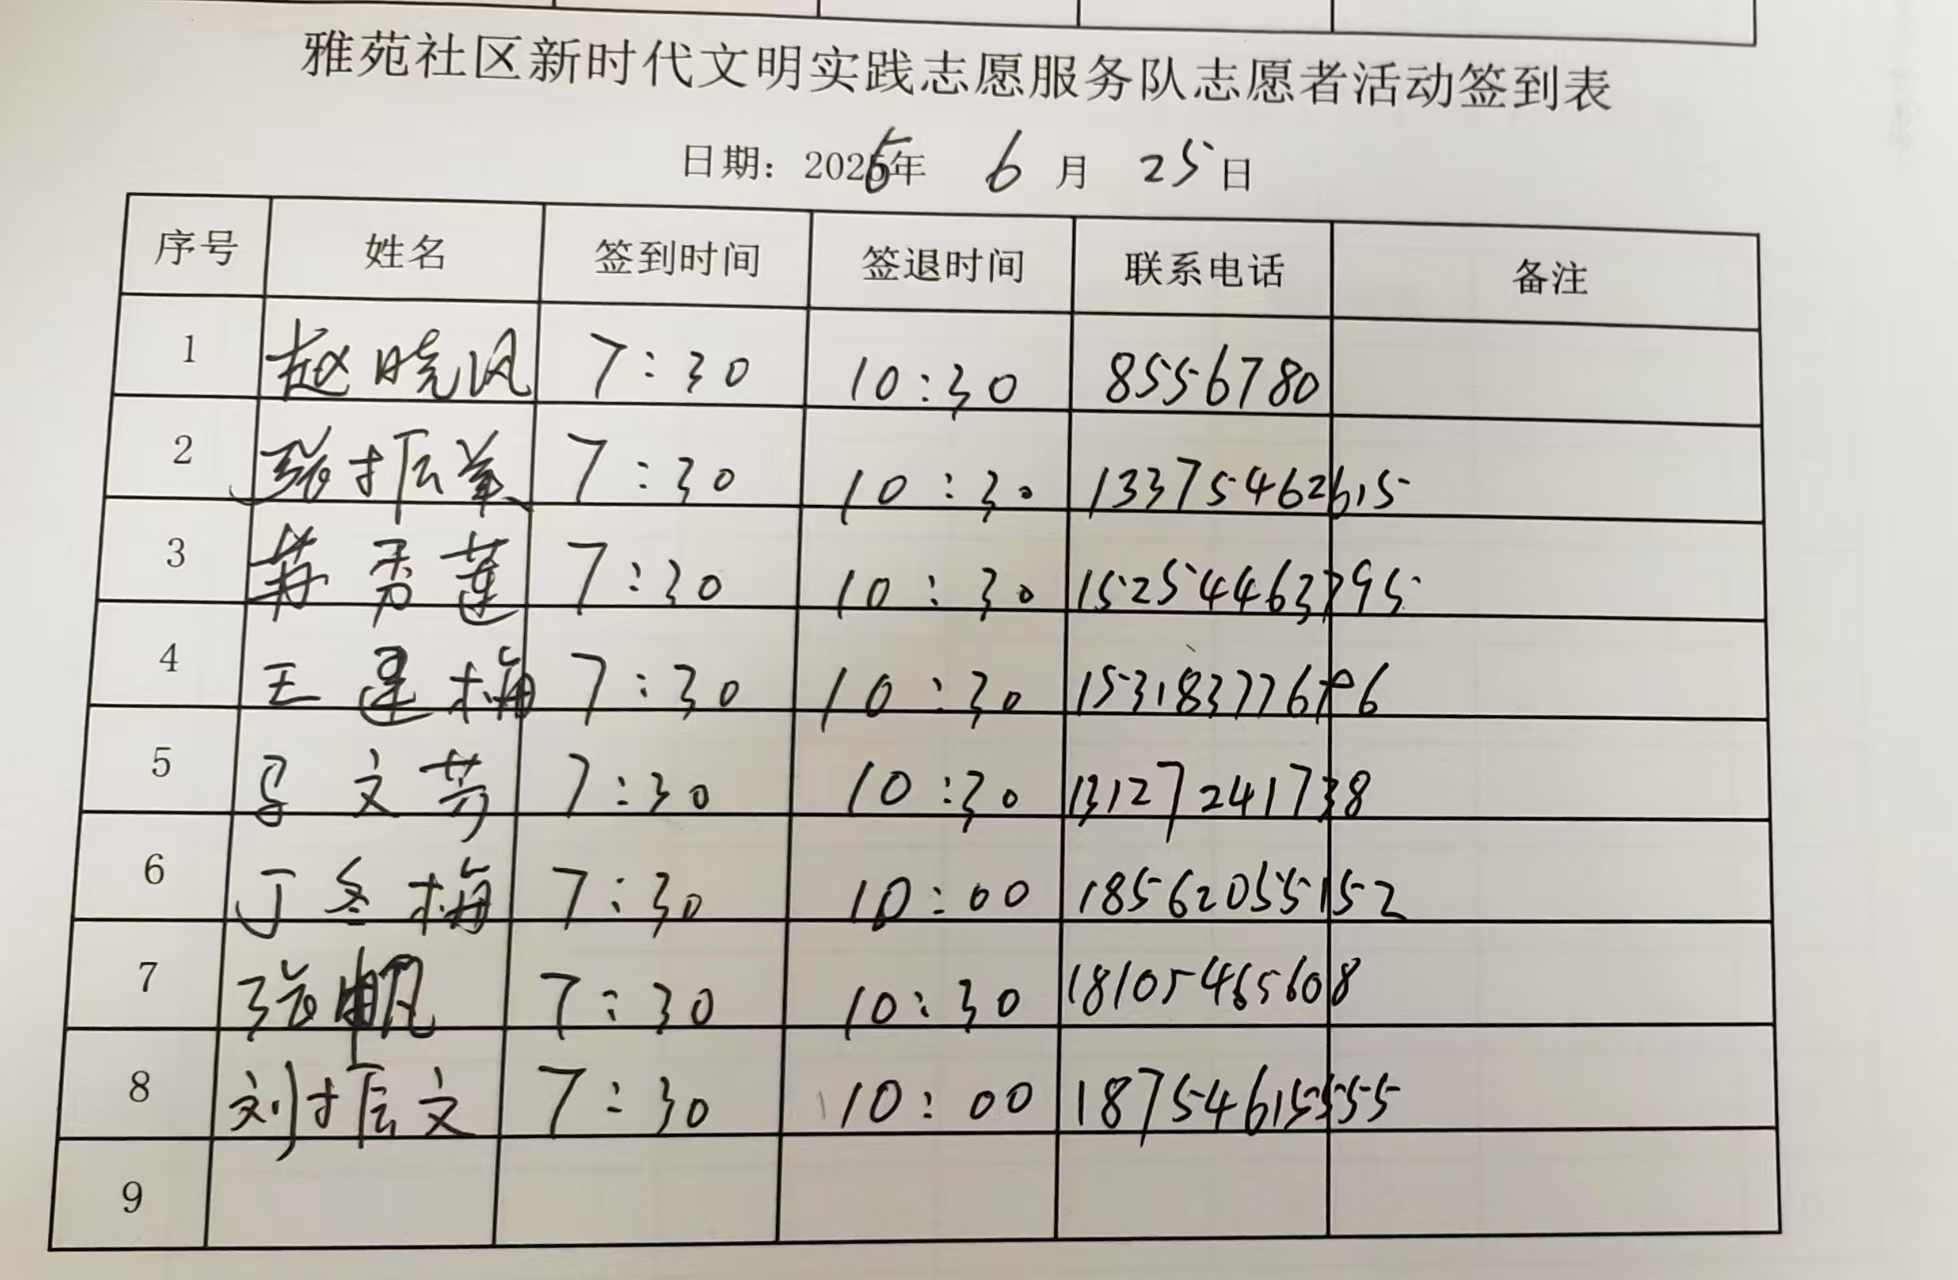 雅苑社区新时代文明实践志愿服务队志愿者活动签到表
日期：2025年 6月 25日
序号 姓名 签到时间 签退时间 联系电话 备注
1 赵晓风 7:30 10:30 8556780
2 张振美 7:30 10:30 13375462615
3 苏秀莲 7:30 10:30 15254463795
4 王建梅 7:30 10:30
5 吕文芳 7:30 10:30 13127241738
6 丁冬梅 7:30 10:00 18562055152
7 张帆 7:30 10:30 18105465608
8 刘振文 7:30 10:00 18754615555
9